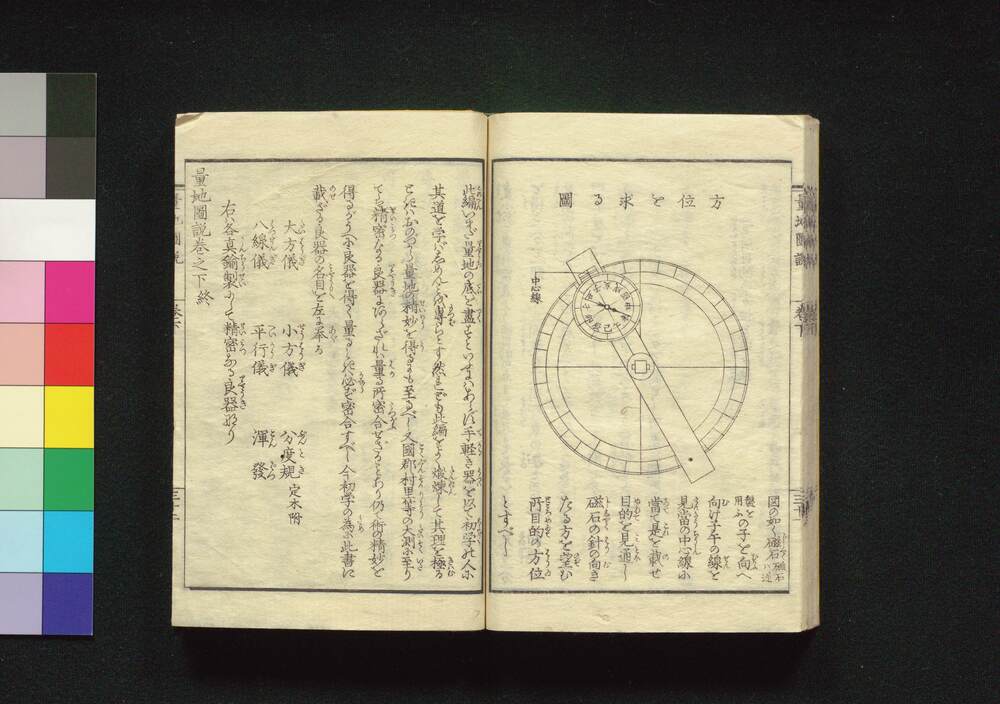 方位を求る圖
中心線
図の如く磁石
磁石ハ逆
製を用ふの子を向へ
向け子午の線と
見當の中心線に
當て是を載せ
目的を見通し
磁石の針の向き
たる方を望む
所目的の方位
とすべし
此編いまだ量地の底を盡すといふにハあらバ手軽き器を以て初学の人に
其道を学バしめんと
然れども此編をよく煅煉して其理を極る
量地の精妙を得るにも至るべし又國郡村里等の大測に至り
てハ精密なる良器にあらざれバ量る所密合せざることあり仍て術の精妙を
得るがうへに良器を得て量るときハ必ず密合すべし今初学の為に此書に
載ざる良器の名目を左に奉る
大方儀 小方儀 分度規 定木附
八線儀 平行儀 渾發
右ハ各真鍮製にして精密なる良器なり
量地圖説巻之下終
量地圖説
巻下